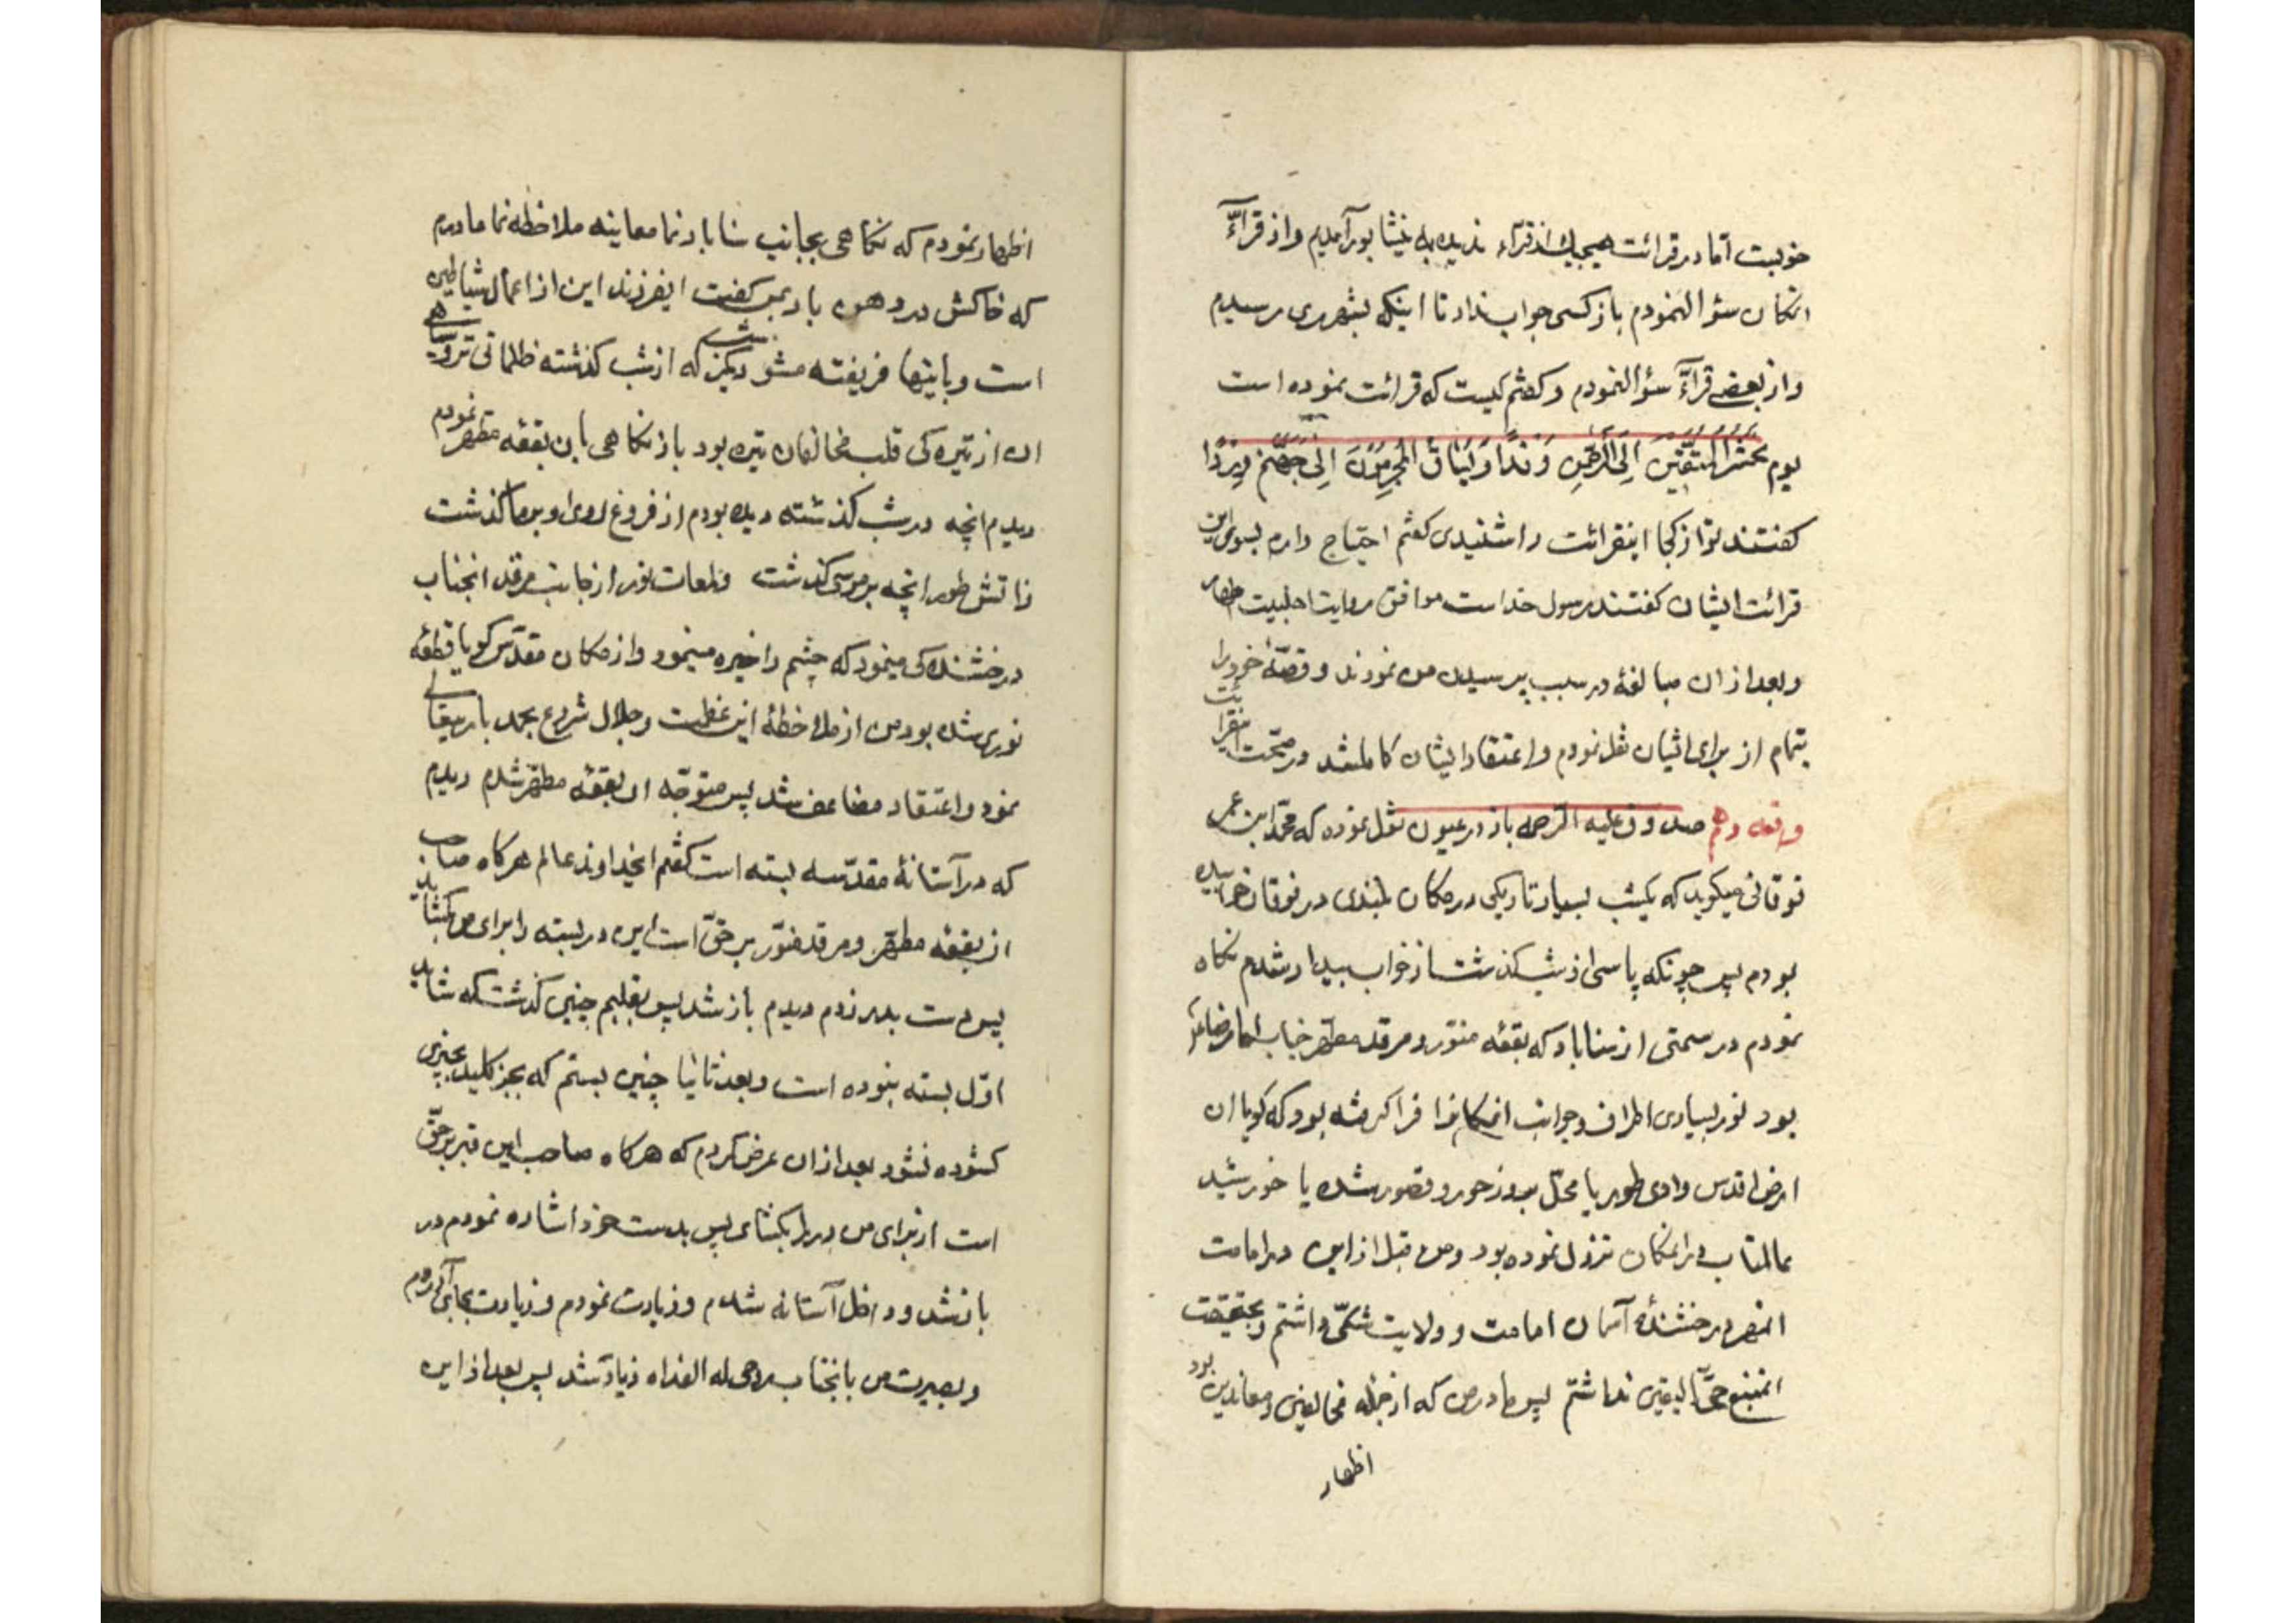 خوبست امّا در قرائت هیچیك از قرّاء ندیده‌ام به نیشابور آمدیم و از قرآء
انمکان سؤال نمودم باز کسی جواب نداد تا اینکه بشهر ری رسیدم
و از بعضی قرّآء سؤال نمودم و گفتم کیست که قرائت نموده است
یوم یحشر المتّقین الی الرّحمن وفدا و یساق المجرمون الی جهنّم وردا
گفتند تو از کجا اینقرائت را شنیدی گفتم احتیاج دارم بسوی این
قرائت ایشان گفتند رسول خداست موافق روایت اهلبیت اطهار
و بعد از ان مبالغه در سبب پرسیدن من نمودند و قصّهٔ خود را
بتمام از برای ایشان نقل نمودم و اعتقاد ایشان کامل شد در صحّت اینقرائت
واقعه دهم صدوق علیه الرحمه باز در عیون نقل نموده که محمّد ابن عمر
نوقانی میگوید که یکشب بسیار تاریکی در مکان بلندی در نوقان خوابیده
بودم پس چونکه پاسی از شب گذشت از خواب بیدار شدم نگاه
نمودم در سمتی از سناباد که بقعه منوّر و مرقد مطهّر جناب امام رضا
بود نور بسیاری اطراف و جوانب انمکانرا فرا گرفته بود که گویا ان
ارض اقدس وادی طور یا محلّ بروز حور و قصور شده یا خورشید
عالمتاب در انمکان نزول نموده بود و من قبل از این در امامت
انمهر درخشندهٔ آسمان امامت و ولایت شکّی داشتم و بحقیقت
انمنبع حقّ الیقین نداشتم پس مادر من که از جمله مخالفین و معاندین بود
اظهار
اظهار نمودم که نگاهی بجانب سناباد نما معاینه ملاحظه نما مادرم
که خاکش در دهن باد بمن گفت ایفرزند این از اعمال شیاطین
است و باینها فریفته مشو شب دیگر که از شب گذشته ظلمانی تر و سیاهی
ان از تیره‌گی قلب مخالفان تیره بود باز نگاهی بان بقعه مطهر نمودم
دیدم انچه در شب گذشته دیده بودم از فروغ روی او بر ما گذشت
ز اتش طور انچه بر موسی گذشت قطعات نور از جانب مرقد انجناب
درخشنده‌گی مینمود که چشم را خیره مینمود و از مکان مقدّس گویا قطعه
نوری شده بود من از ملاحظهٔ این عظمت و جلال شروع بحمد باریتعالی
نمود و اعتقاد مضاعف شد پس متوجّه ان بقعه مطهّر شدم دیدم
که در آستانهٔ مقدّسه بسته است گفتم ایخداوند عالم هر گاه صاحب
از بقعه مطهّر و مرقد منوّر بر حقّ است این در بسته را برای من بگشاید
پس دست بدر زدم دیدم باز شد پس بقلبم چنین گذشت که شاید
اوّل بسته نبوده است و بعد ثانیا چنین بستم که بجز کلید بچیزی
گشوده نشود بعد از ان عرض کردم که هر گاه صاحب این قبر بر حقّ
است از برای من در را بگشای پس بدست خود اشاره نمودم در
باز شد و داخل آستانه شدم و زیارت نمودم و زیارت بجای آوردم
و بصیرت من بانجناب روحی له الفداه زیاد شد پس بعد از این